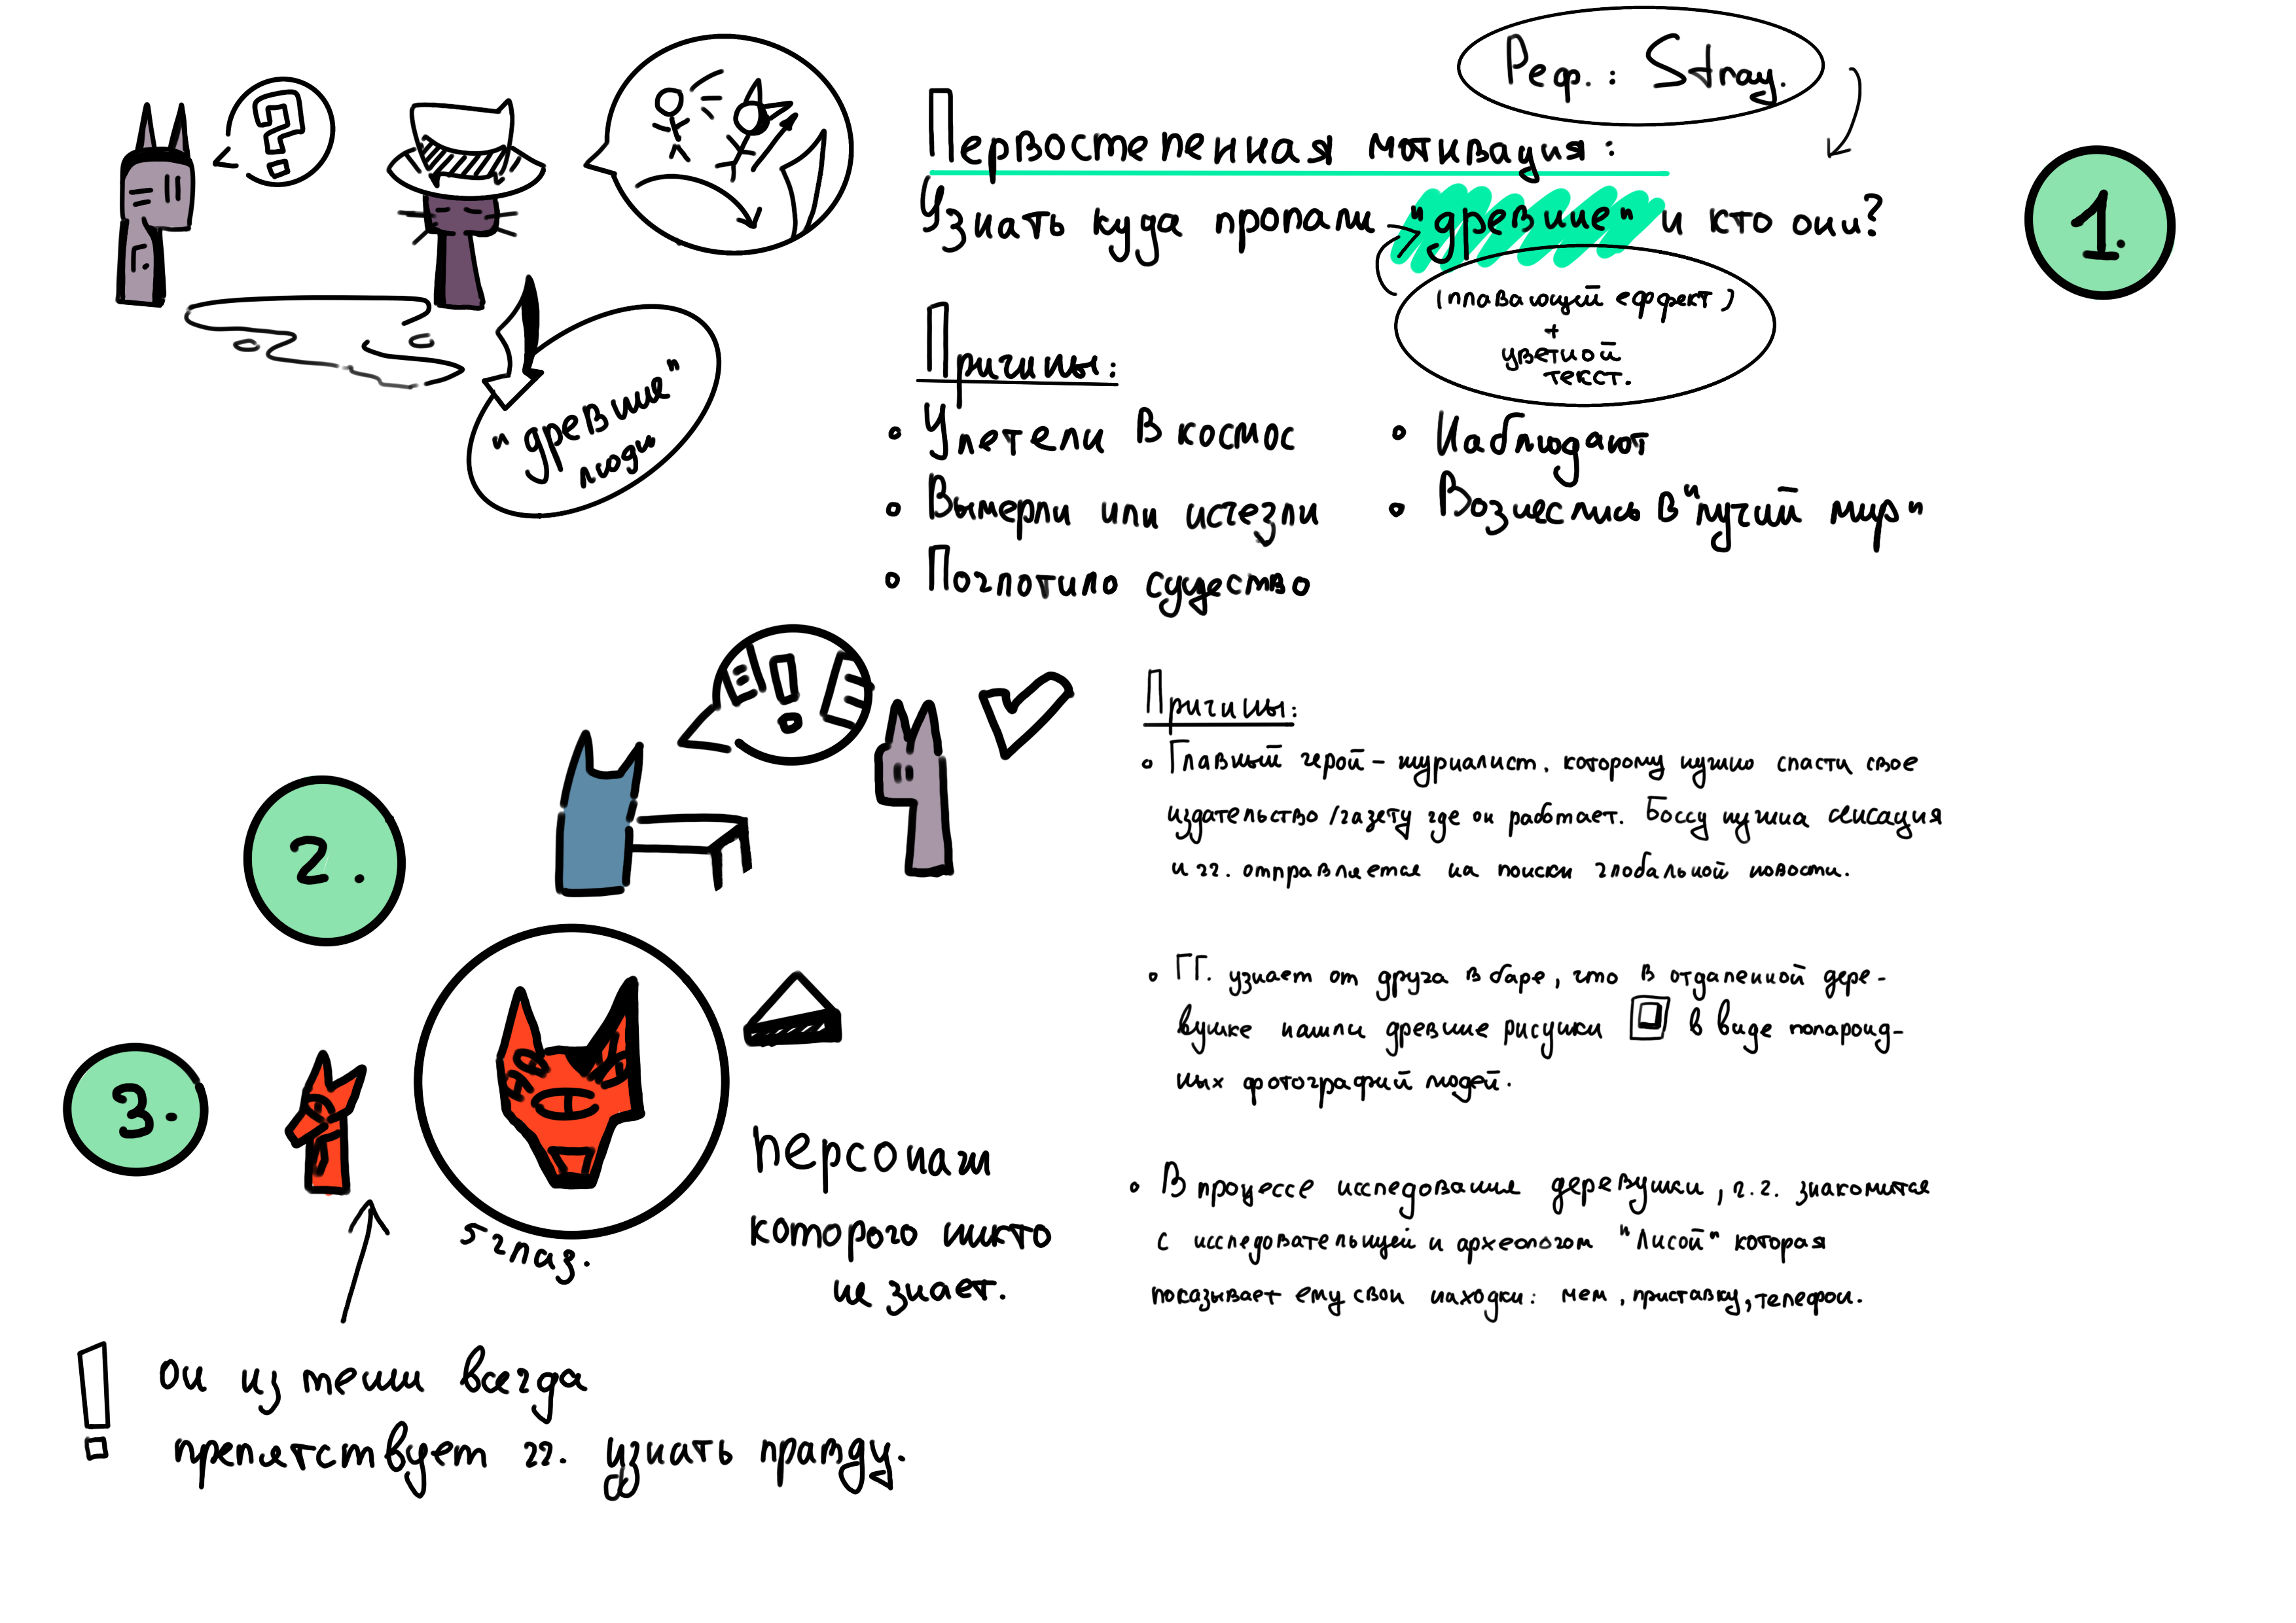 Реф.: Stray.
Первостепенная мотивация:
Узнать куда пропали "древние" и кто они?
1.
(плавающий еффект)
+
цветной
текст.
?
"древние"
люди
Причины:
• Улетели в космос
• Вымерли или исчезли
• Поглотило существо
• Наблюдают
• Вознеслись в "лучий мир"
2.
!
Причины:
• Главный герой - журналист. которому нужно спасти свое
издательство/газету где он работает. Боссу нужна сенсация
и гг. отправляется на поиски глобальной новости.
• ГГ. узнает от друга в баре, что в отдаленной дере-
вушке нашли древние рисунки в виде полароид-
ных фотографий людей.
• В процессе исследования деревушки, г.г. знакомится
с исследовательницей и археологом "Лисой" которая
показывает ему свои находки: мем, приставку, телефон.
3.
5 глаз.
персонаж
которого никто
не знает.
! он из тени всегда
препятствует гг. узнать правду.